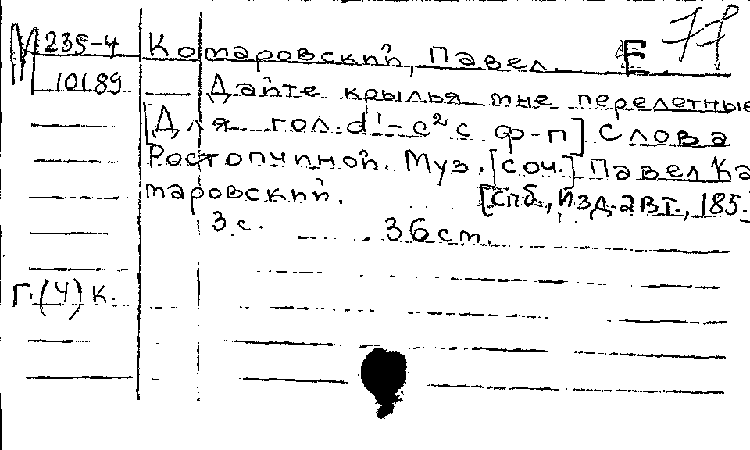 М 235-4 Комаровский, Павел. Е 77
10189 Дайте крылья мне перелетные
[Для гол. d¹-c² с ф-п] Слова
Ростопчиной. Муз. [соч.] Павел Ко
маровский. [Спб., Изд. авт., 185-
3 с. 36 см.
Г. (4) к.